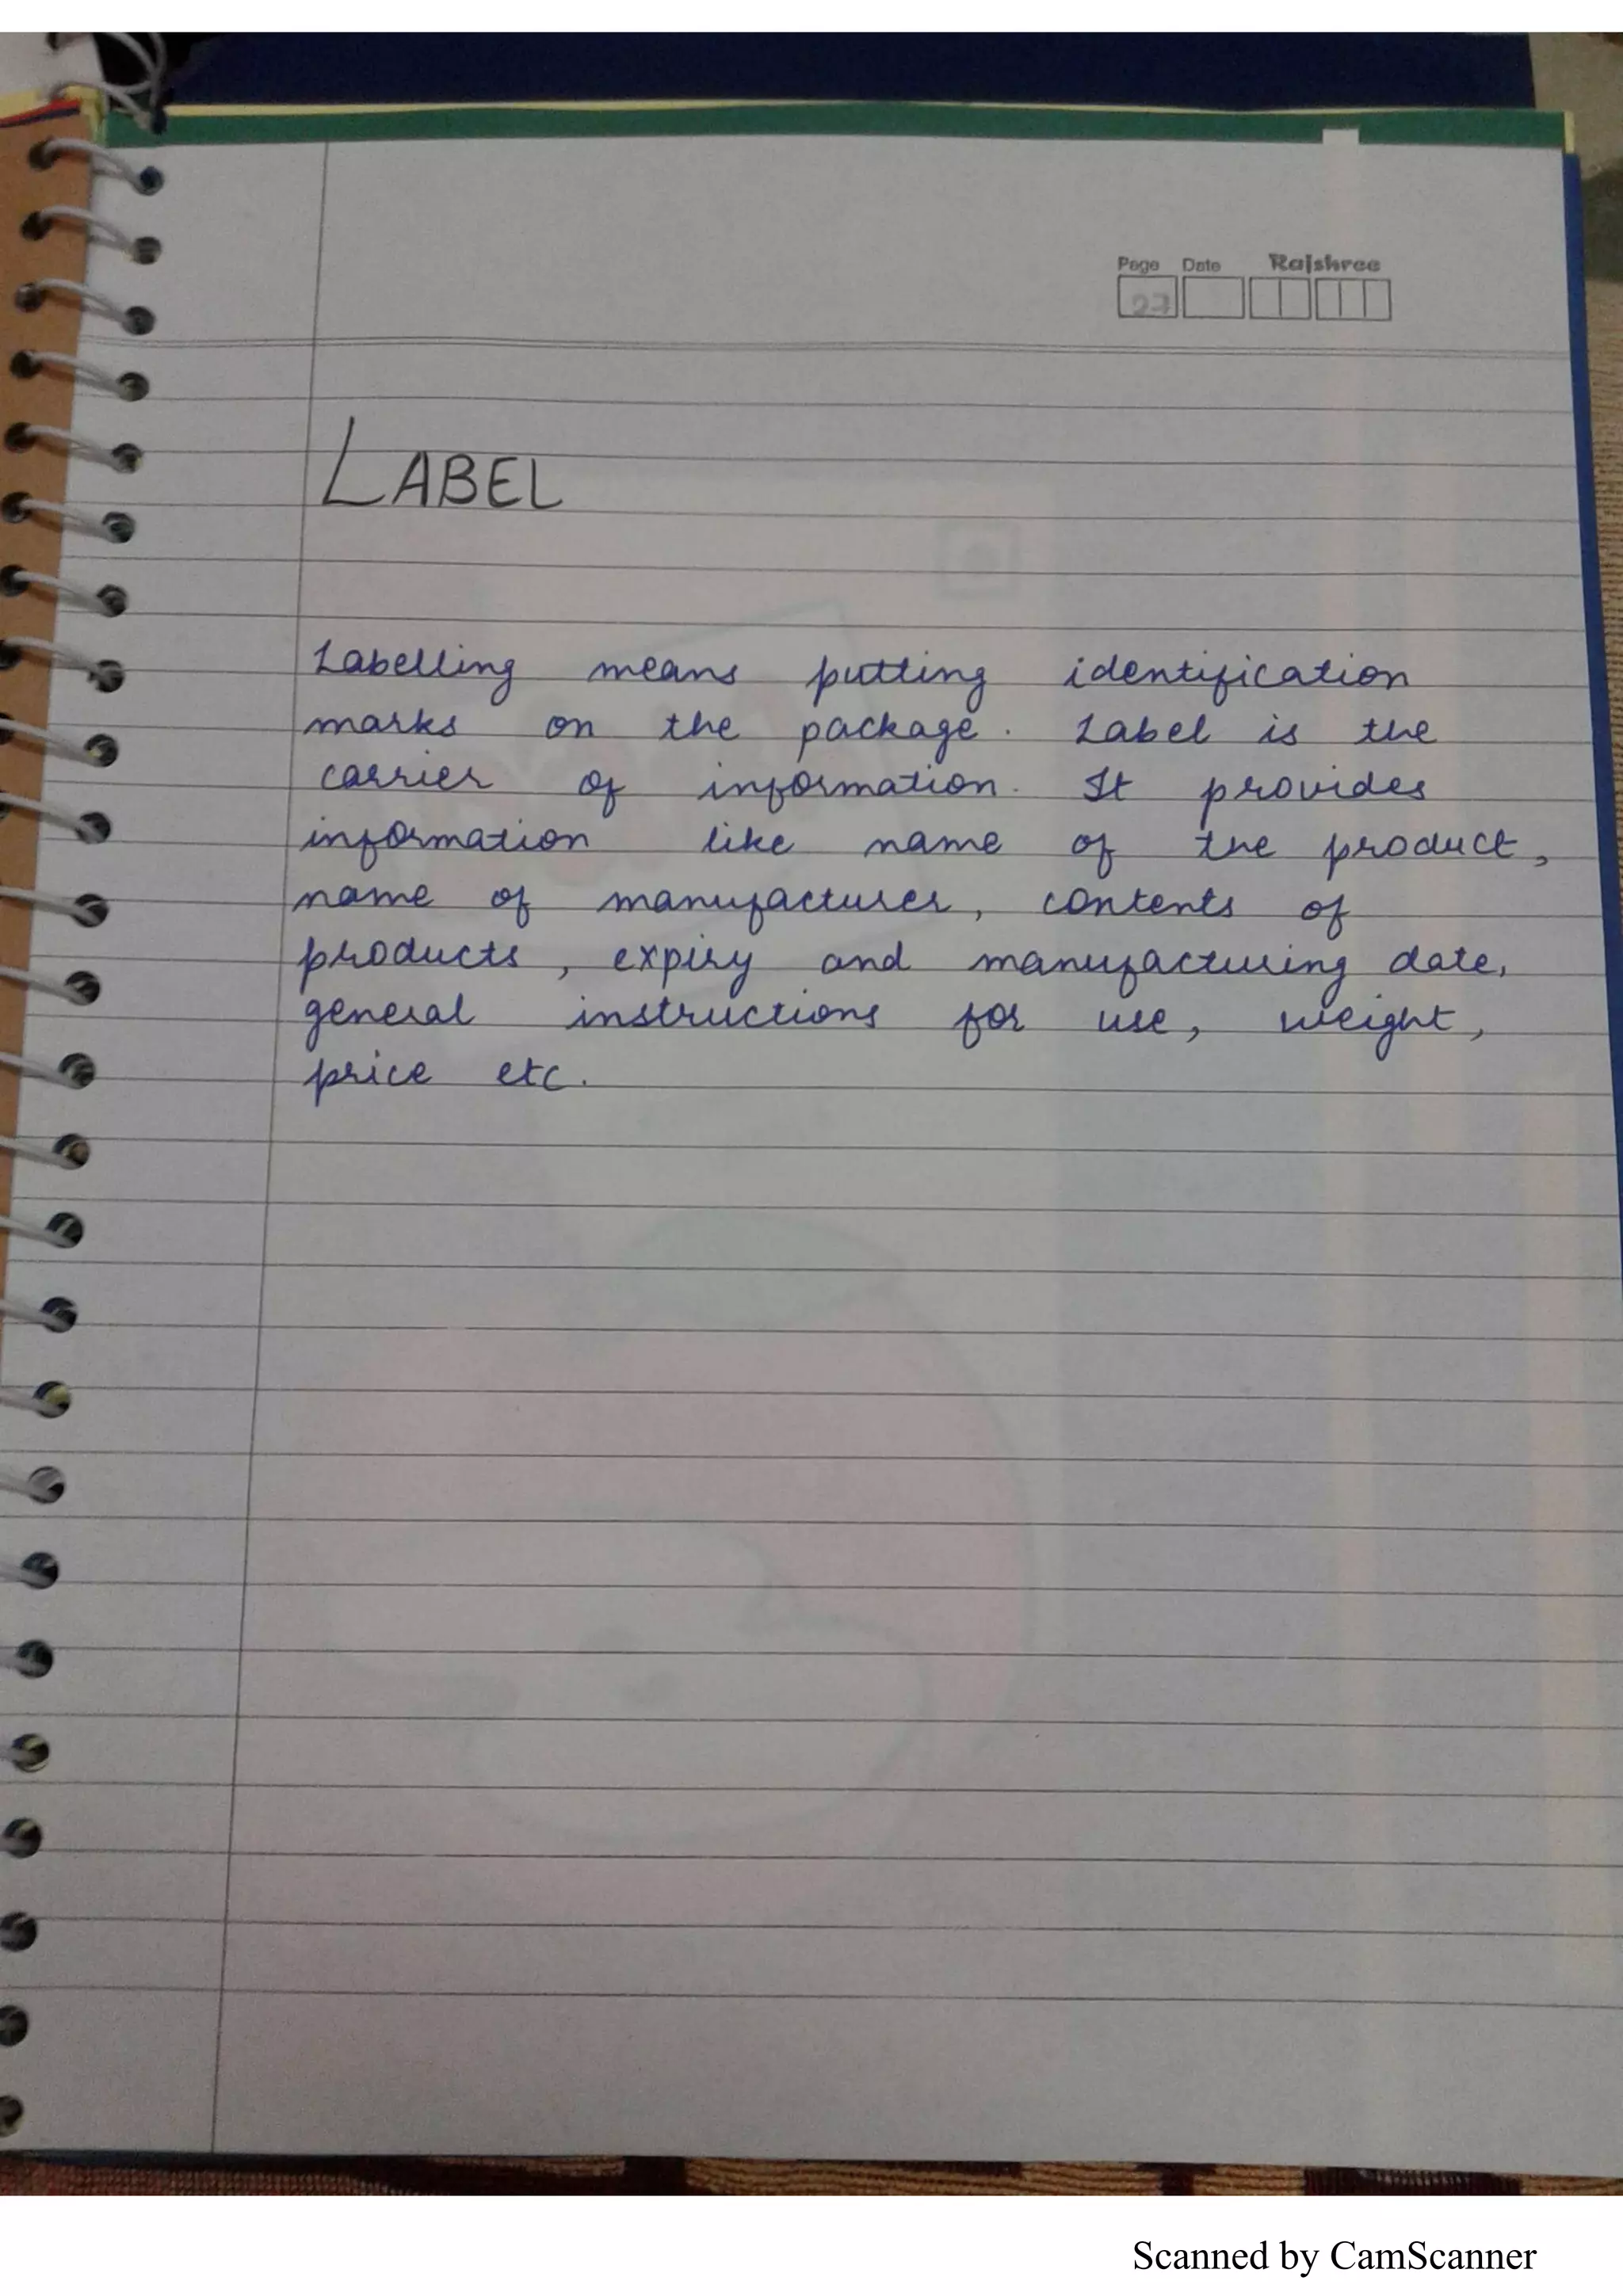 Page Date Rajshree
27
LABEL
Labelling means putting identification
marks on the package. Label is the
carrier of information. It provides
information like name of the product,
name of manufacturer, contents of
products, expiry and manufacturing date,
general instructions for use, weight,
price etc.
Scanned by CamScanner